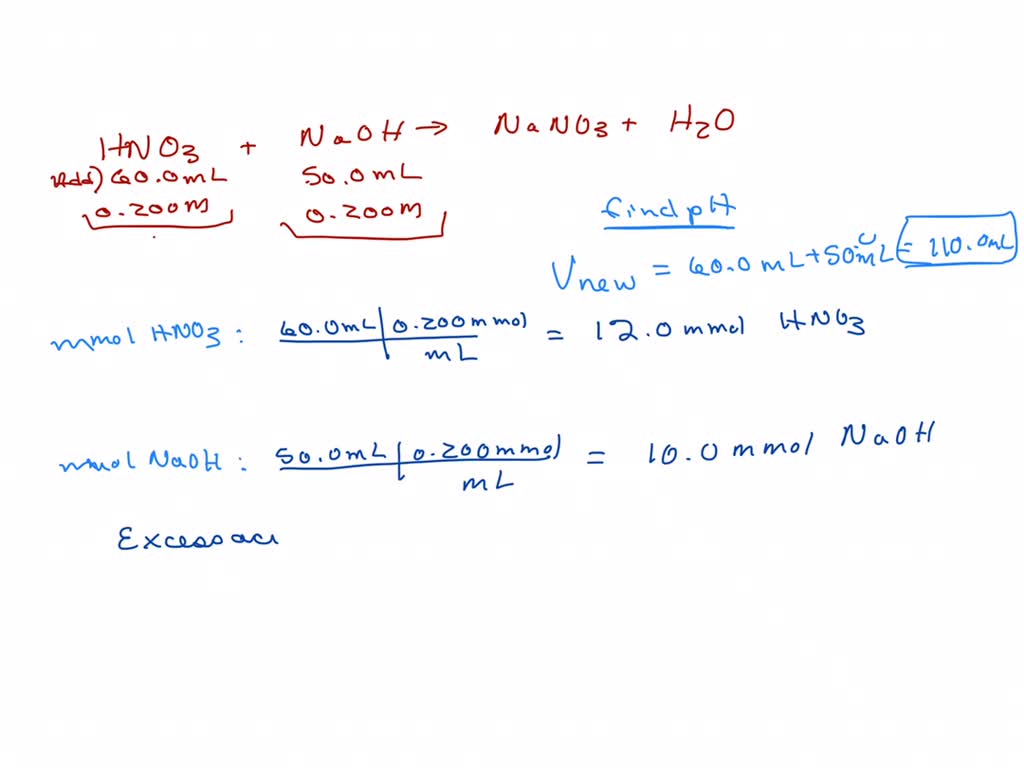 HNO3 + NaOH → NaNO3 + H2O
Add) 60.0mL 50.0mL
0.200M 0.200M
find pH
Vnew = 60.0mL + 50.0mL = 110.0mL
mmol HNO3: 60.0mL | 0.200mmol / mL = 12.0 mmol HNO3
mmol NaOH: 50.0mL | 0.200mmol / mL = 10.0 mmol NaOH
Excess aci